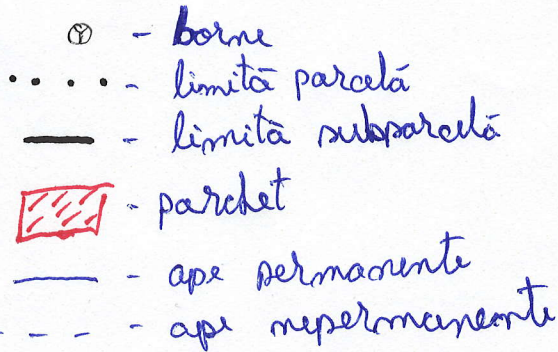 Ⓨ - borne
- limită parcelă
- limită subparcelă
- parchet
- ape permanente
- ape nepermanente